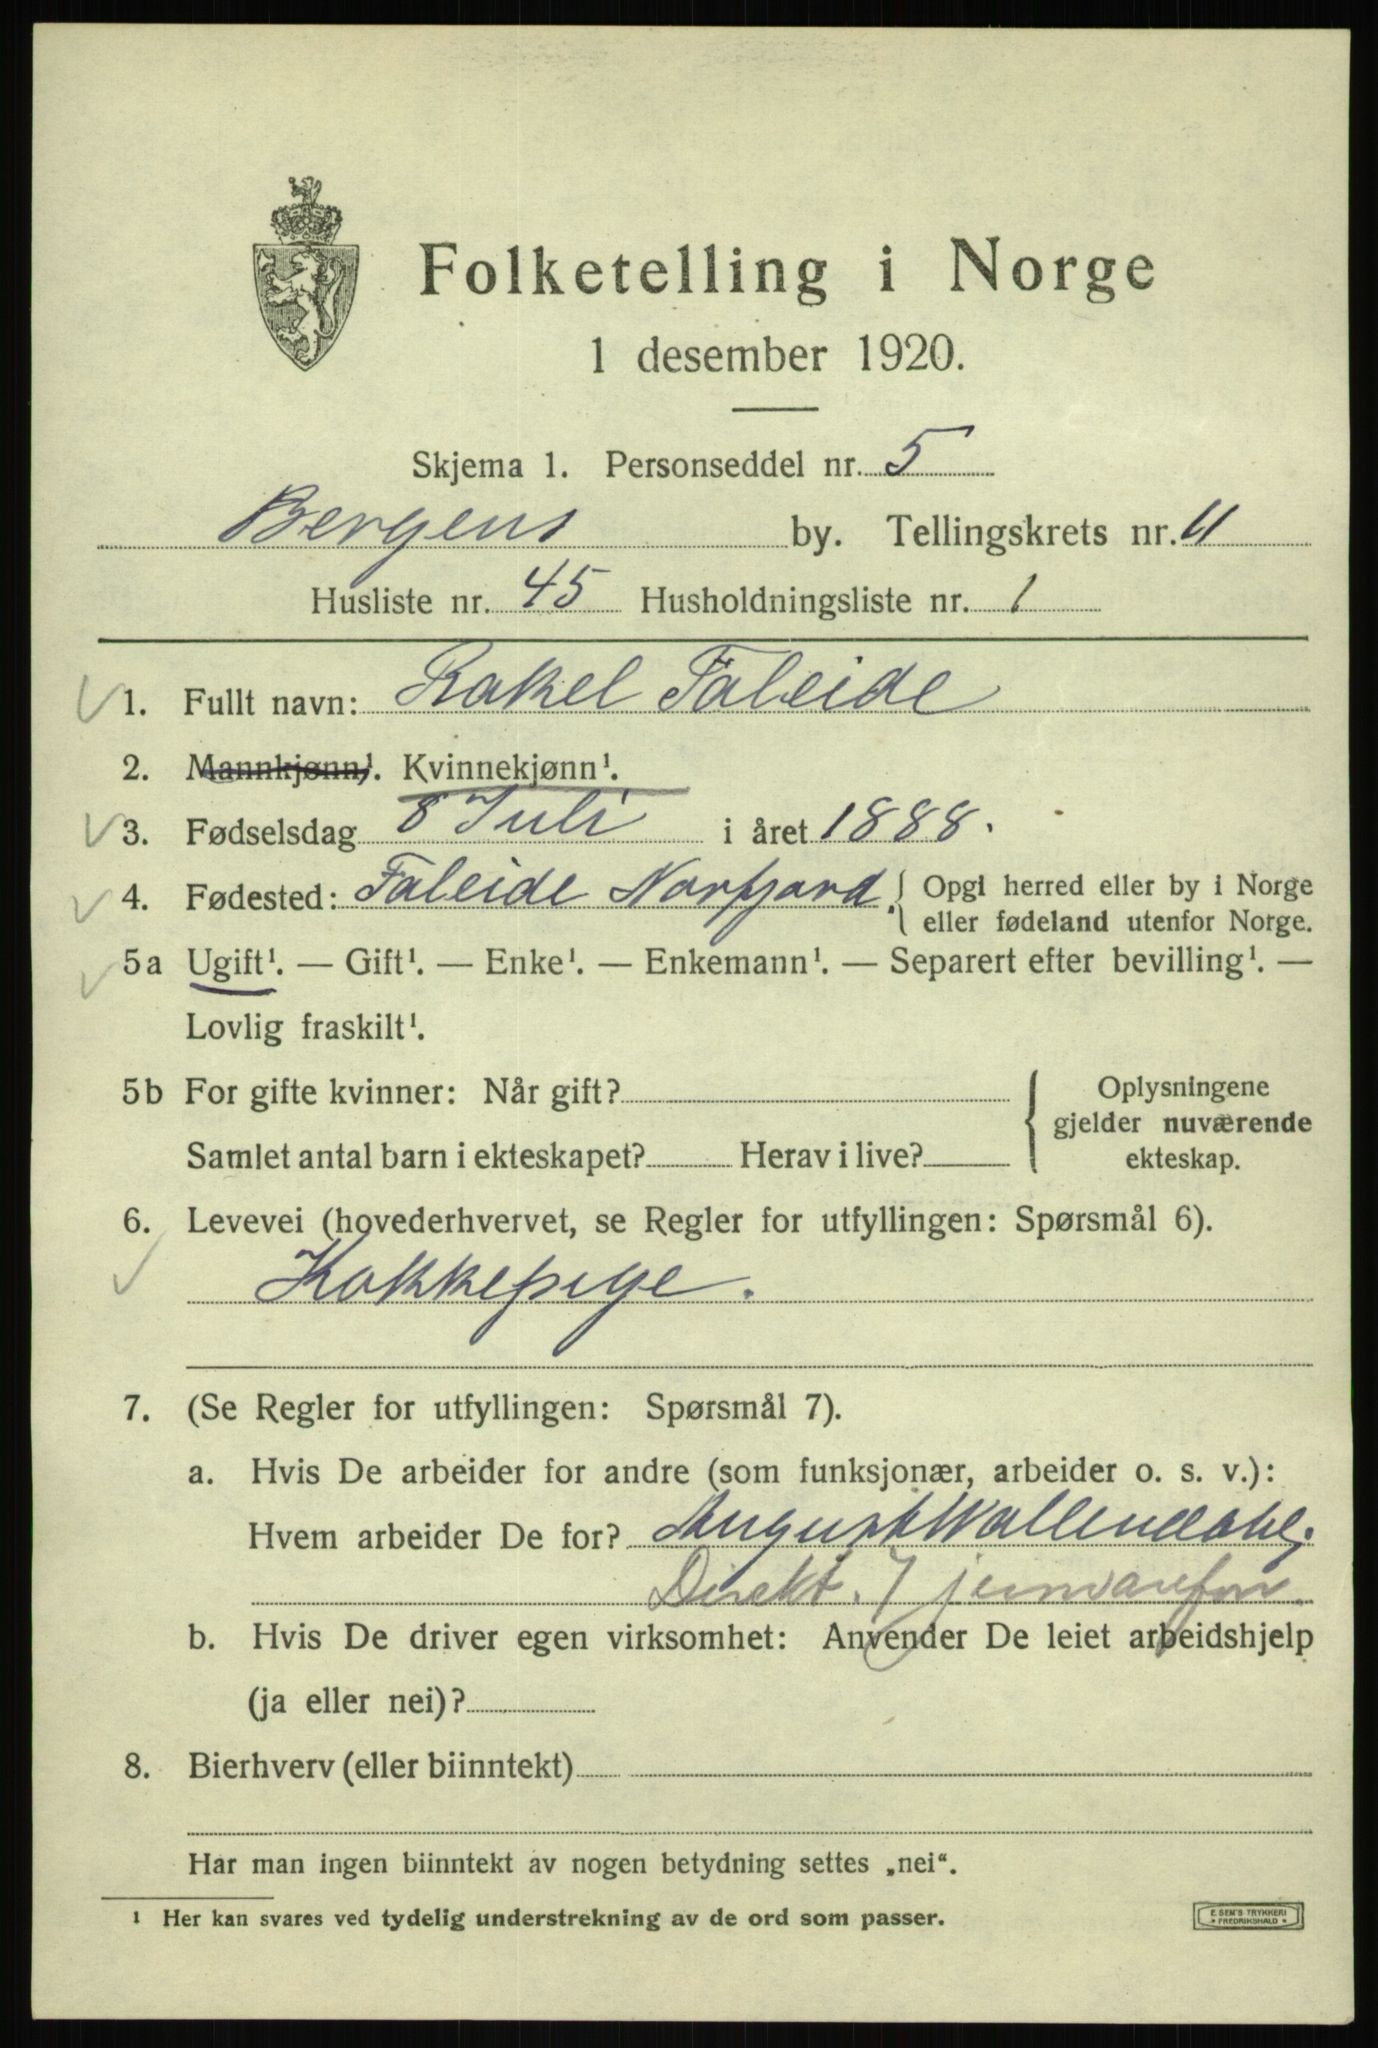 Folketelling i Norge
1 desember 1920.
Skjema 1. Personseddel nr. 5
Bergens by. Tellingskrets nr. 11
Husliste nr. 45 Husholdningsliste nr. 1
1. Fullt navn: Rakel Faleide
2. Mannkjønn¹. Kvinnekjønn¹.
3. Fødselsdag 8 Juli i året 1888.
4. Fødested: Faleide Norfjord. { Opgi herred eller by i Norge
eller fødeland utenfor Norge.
5a Ugift¹. — Gift¹. — Enke¹. — Enkemann¹. — Separert efter bevilling¹. —
Lovlig fraskilt¹.
5b For gifte kvinner: Når gift? { Oplysningene
gjelder nuværende
Samlet antal barn i ekteskapet? Herav i live? ekteskap.
6. Levevei (hovederhvervet, se Regler for utfyllingen: Spørsmål 6).
Kokkepige.
7. (Se Regler for utfyllingen: Spørsmål 7).
a. Hvis De arbeider for andre (som funksjonær, arbeider o. s. v.):
Hvem arbeider De for? August Wallendahl.
Direkt. i jernvarefor.
b. Hvis De driver egen virksomhet: Anvender De leiet arbeidshjelp
(ja eller nei)?
8. Bierhverv (eller biinntekt)
Har man ingen biinntekt av nogen betydning settes „nei“.
¹ Her kan svares ved tydelig understrekning av de ord som passer.
E. SEM'S TRYKKERI
FREDRIKSHALD